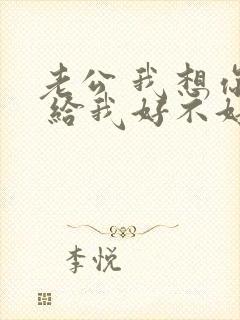 老公 我想你
給我好不好
李悦